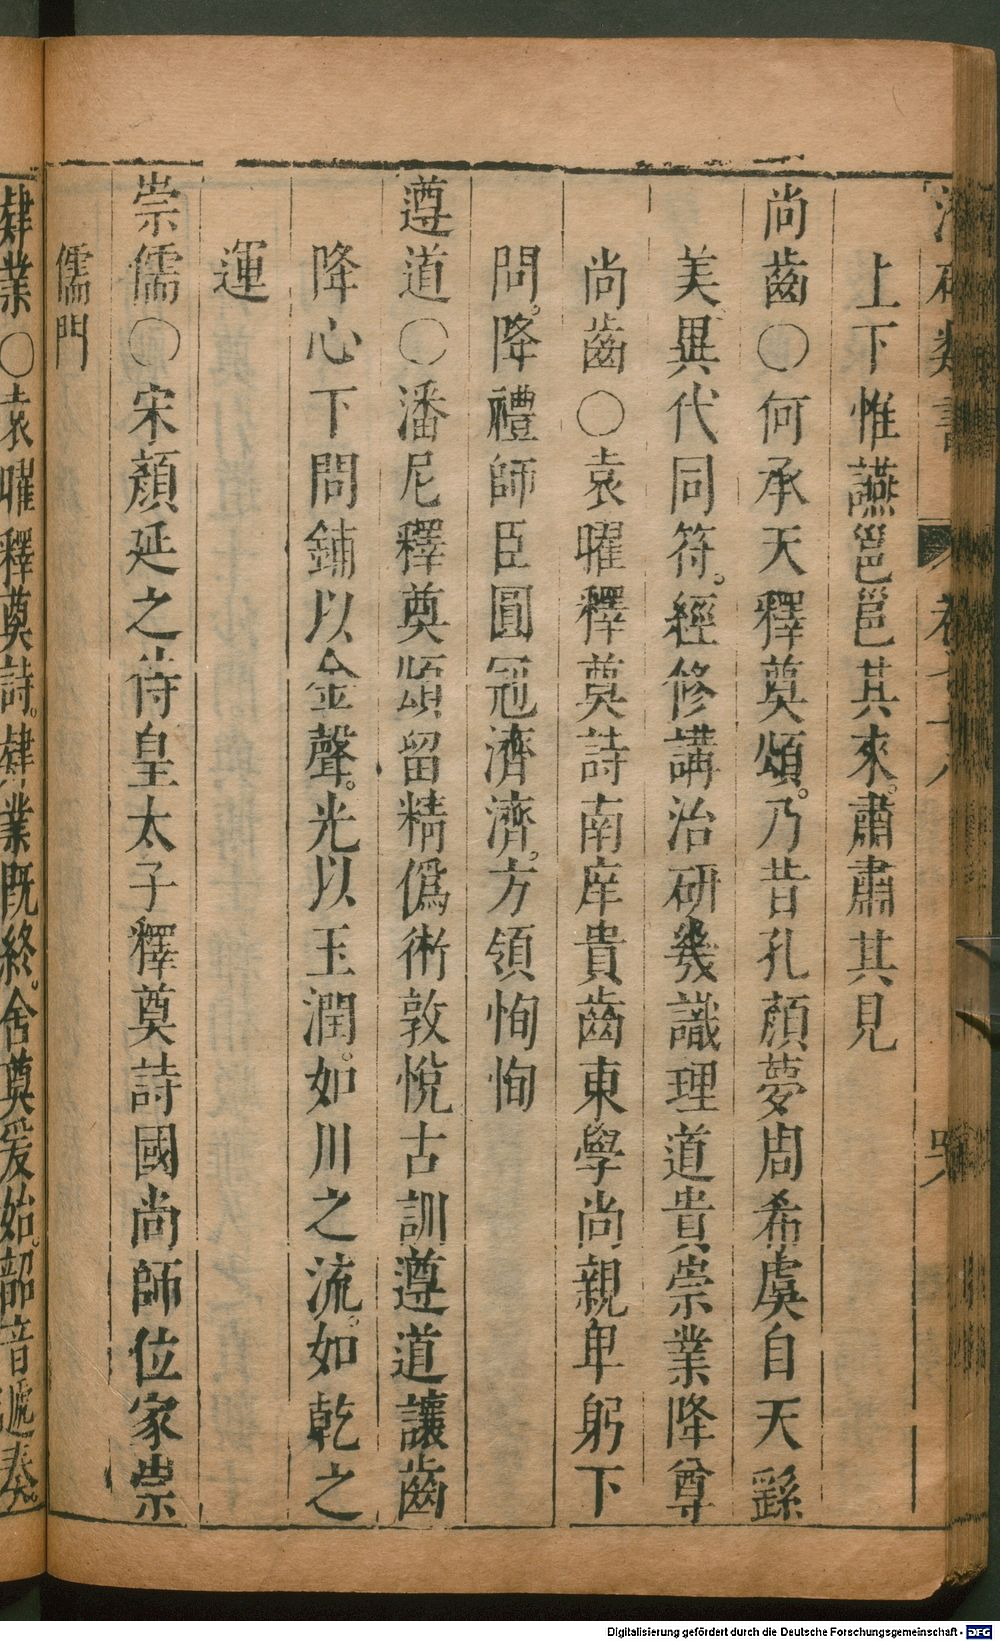 上下惟讌邕邕其來肅肅其見
尚齒○何承天釋奠頌乃昔孔顏夢周希虞自天繇
美異代同符經修講治研幾識理道貴崇業降尊
尚齒○袁曜釋奠詩南庠貴齒東學尚親卑躬下
問降禮師臣圓冠濟濟方領恂恂
遵道○潘尼釋奠頌留精僞術敦悅古訓遵道讓齒
降心下問鋪以金聲光以玉潤如川之流如乾之
運
崇儒○宋顏延之侍皇太子釋奠詩國尚師位家崇
儒門
肄業○袁曜釋奠詩肄業既終舍奠爰始韶音遞奏
Digitalisierung gefördert durch die Deutsche Forschungsgemeinschaft - DFG